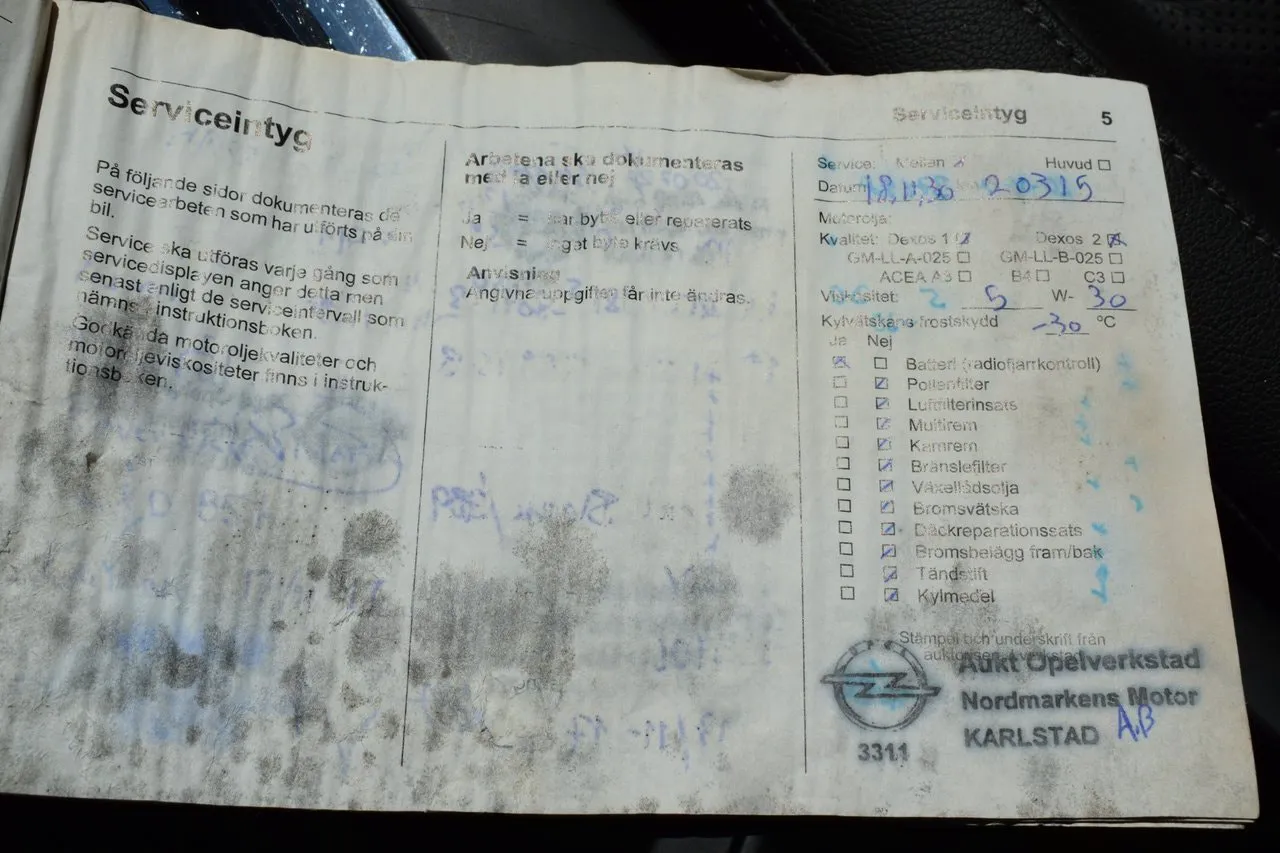 Serviceintyg
På följande sidor dokumenteras de
servicearbeten som har utförts på din
bil.
Service ska utföras varje gång som
servicedisplayen anger detta men
senast enligt de serviceintervall som
nämns i instruktionsboken.
Godkända motoroljekvaliteter och
motoroljeviskositeter finns i instruk-
tionsboken.
Arbetena ska dokumenteras
med ja eller nej
Ja = har bytts eller reparerats
Nej = inget byte krävs
Anvisning
Angivna uppgifter får inte ändras.
Serviceintyg 5
Service: Mellan Huvud
Datum 20315
Motorolja:
Kvalitet: Dexos 1 Dexos 2
GM-LL-A-025 GM-LL-B-025
ACEA A3 B4 C3
Viskositet: 5 W- 30
Kylvätskans frostskydd -30 °C
Ja Nej
Batteri (radiofjärrkontroll)
Pollenfilter
Luftfilterinsats
Multirem
Kamrem
Bränslefilter
Växellådsolja
Bromsvätska
Däckreparationssats
Bromsbelägg fram/bak
Tändstift
Kylmedel
Stämpel och underskrift från
OPEL
Aukt Opelverkstad
Nordmarkens Motor
KARLSTAD AB
3311